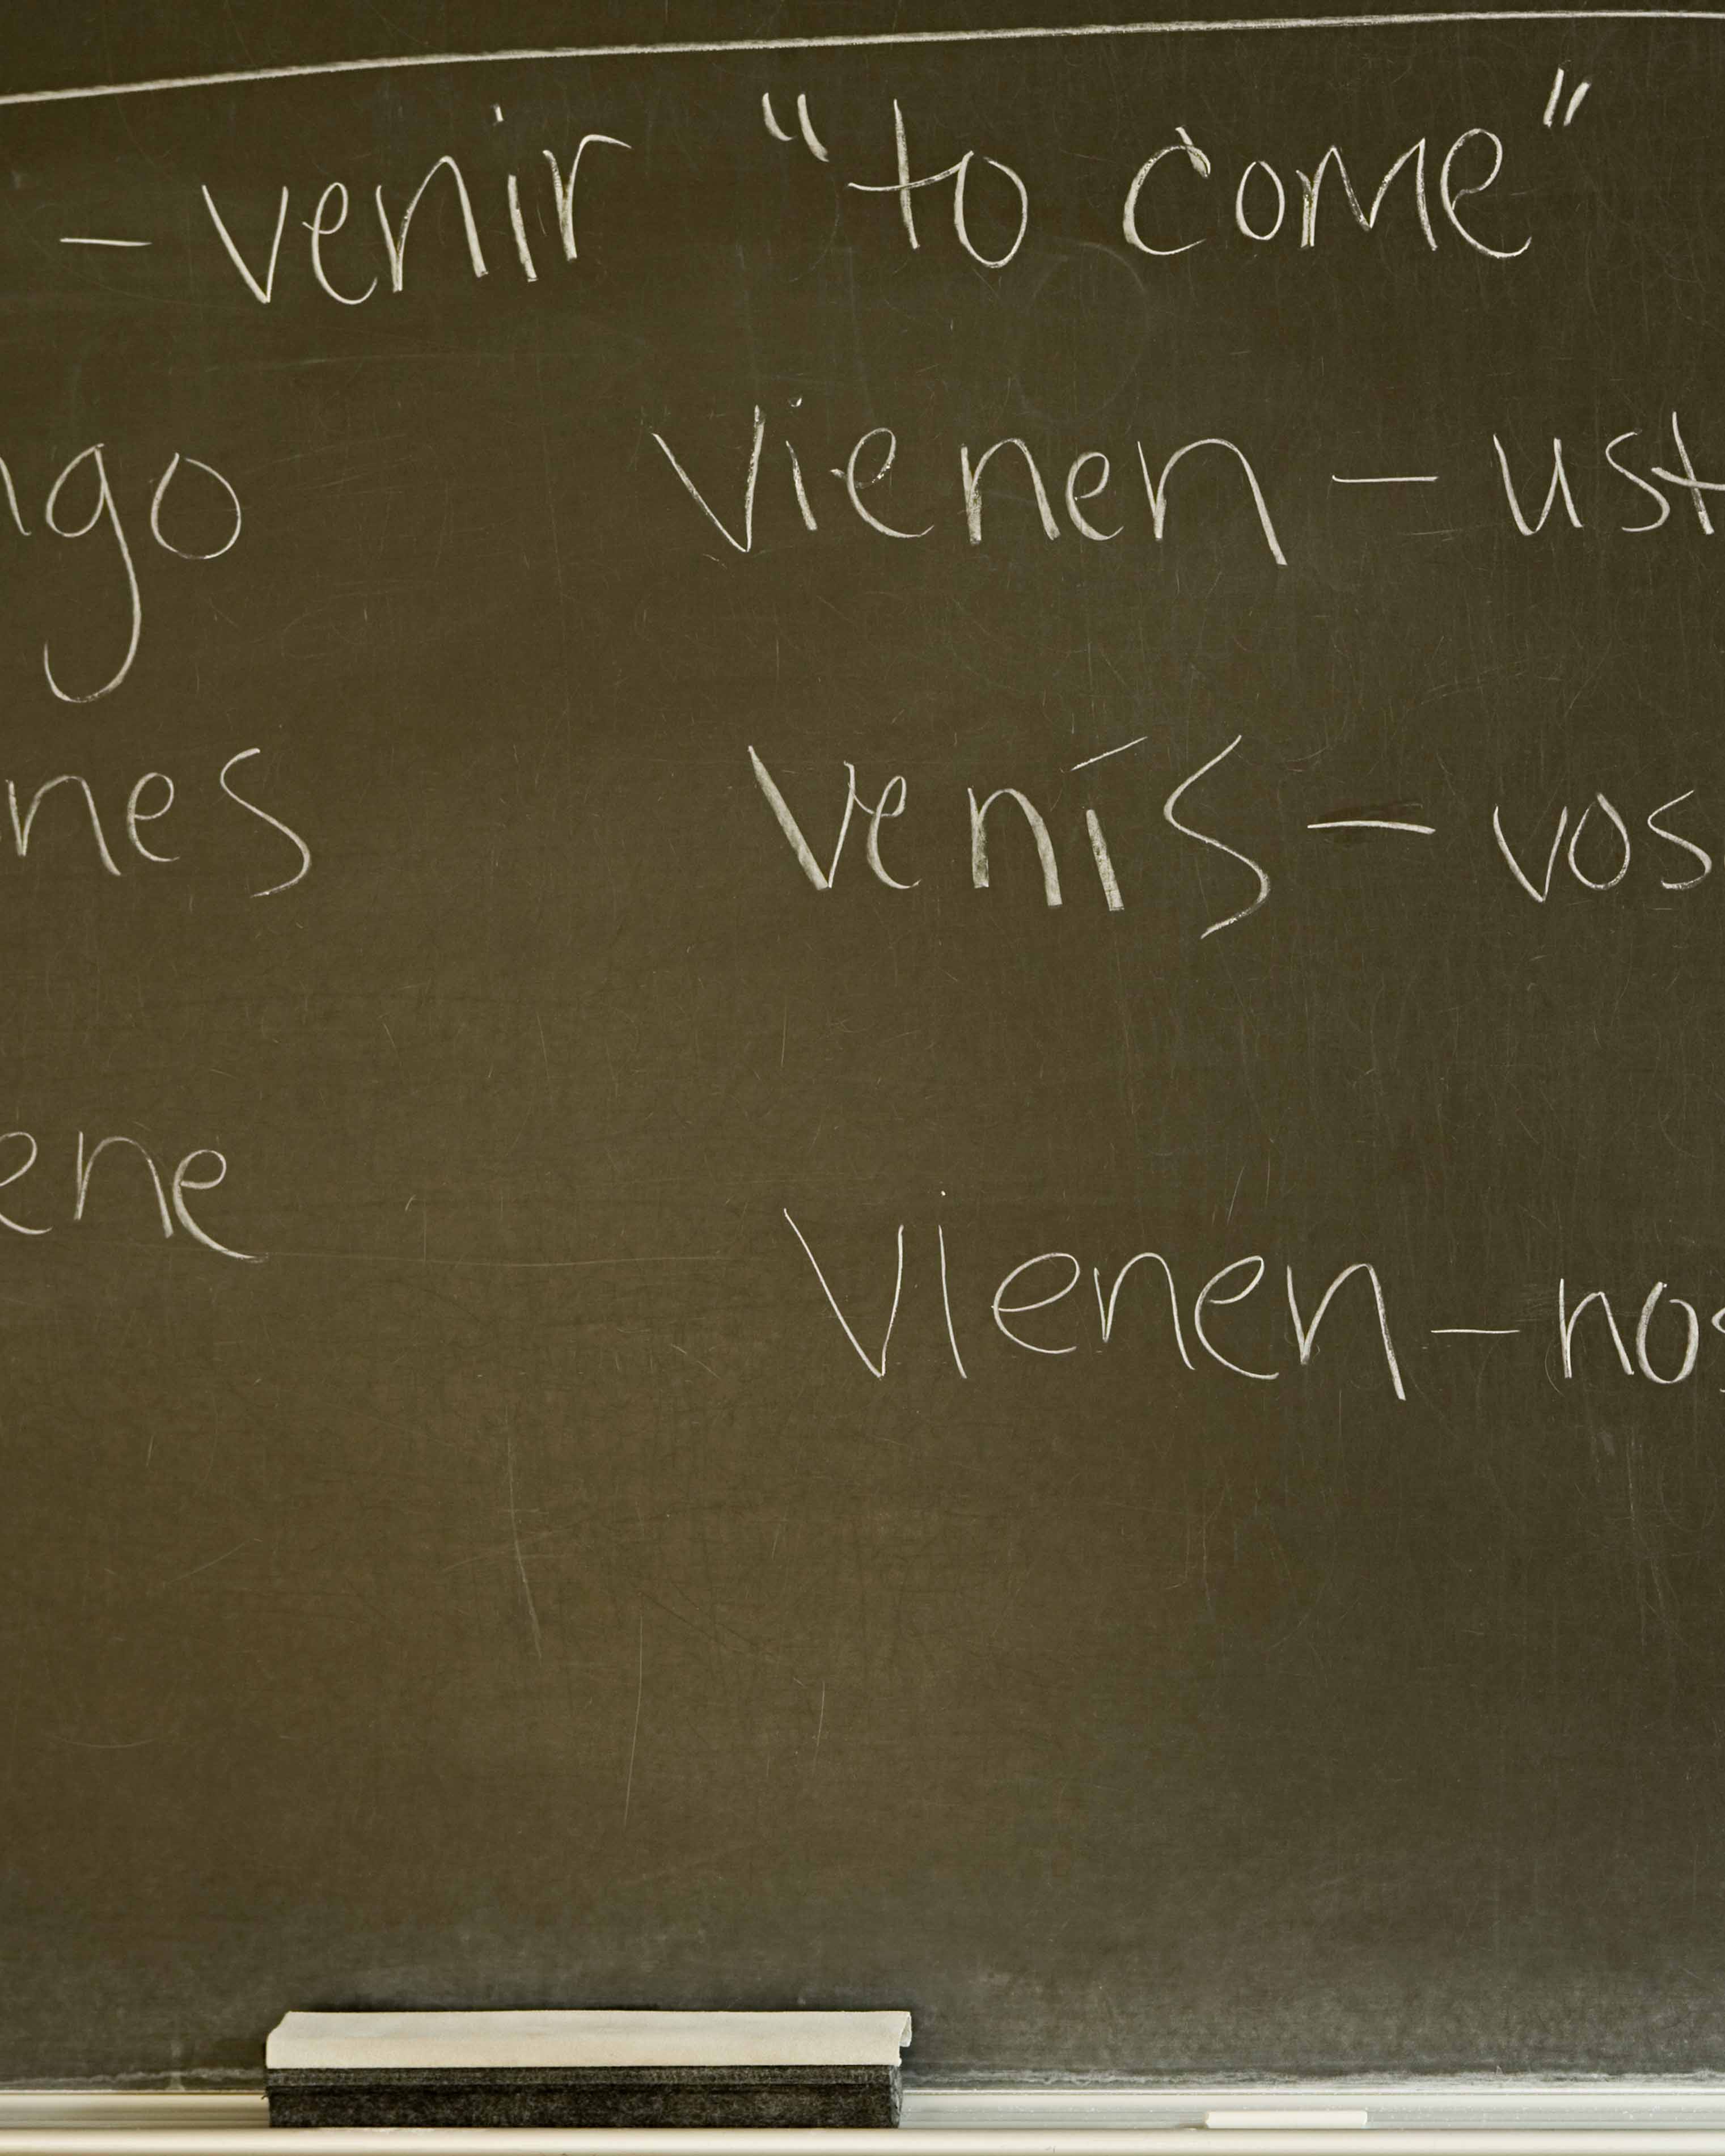 - venir "to come"
ngo vienen - ust
nes venís - vos
ene
vienen - nos